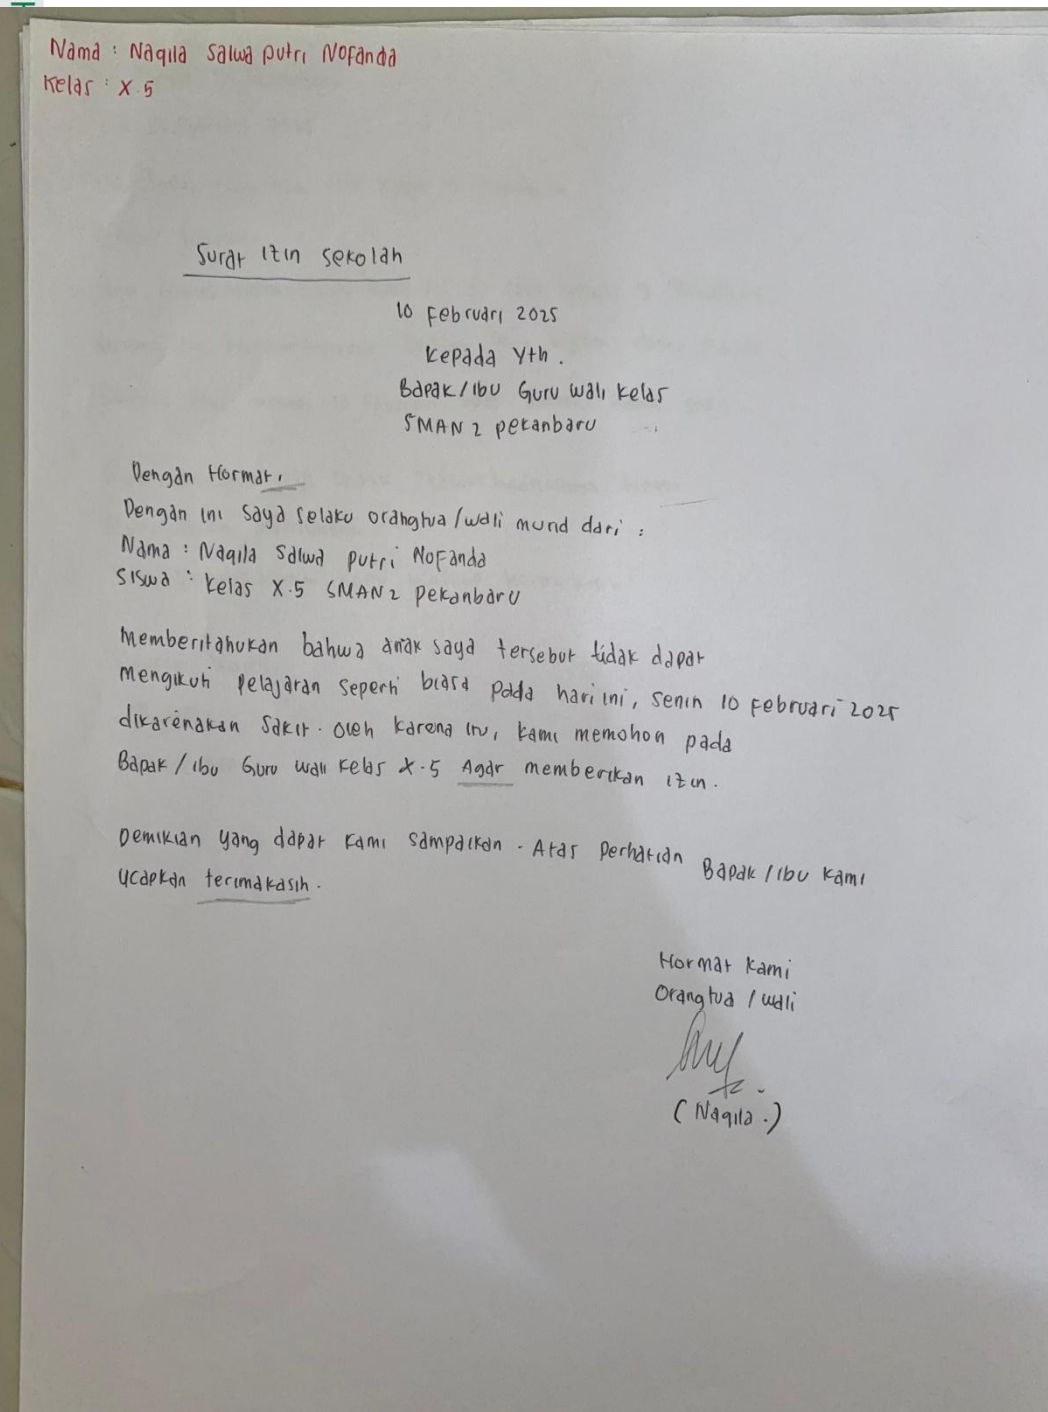 Nama : Naqila Salwa putri Nofanda
Kelas : X.5
Surat Izin Sekolah
10 Februari 2025
Kepada Yth.
Bapak/Ibu Guru wali kelas
SMAN 2 pekanbaru
Dengan Hormat,
Dengan ini saya selaku orangtua/wali murid dari :
Nama : Naqila Salwa putri Nofanda
Siswa : Kelas X.5 SMAN 2 pekanbaru
Memberitahukan bahwa anak saya tersebut tidak dapat
mengikuti pelajaran seperti biasa pada hari ini, senin 10 Februari 2025
dikarenakan sakit. Oleh karena itu, kami memohon pada
Bapak/ibu Guru wali kelas X.5 Agar memberikan izin.
Demikian yang dapat kami sampaikan. Atas perhatian Bapak/ibu kami
ucapkan terimakasih.
Hormat kami
Orangtua/wali
(Naqila.)